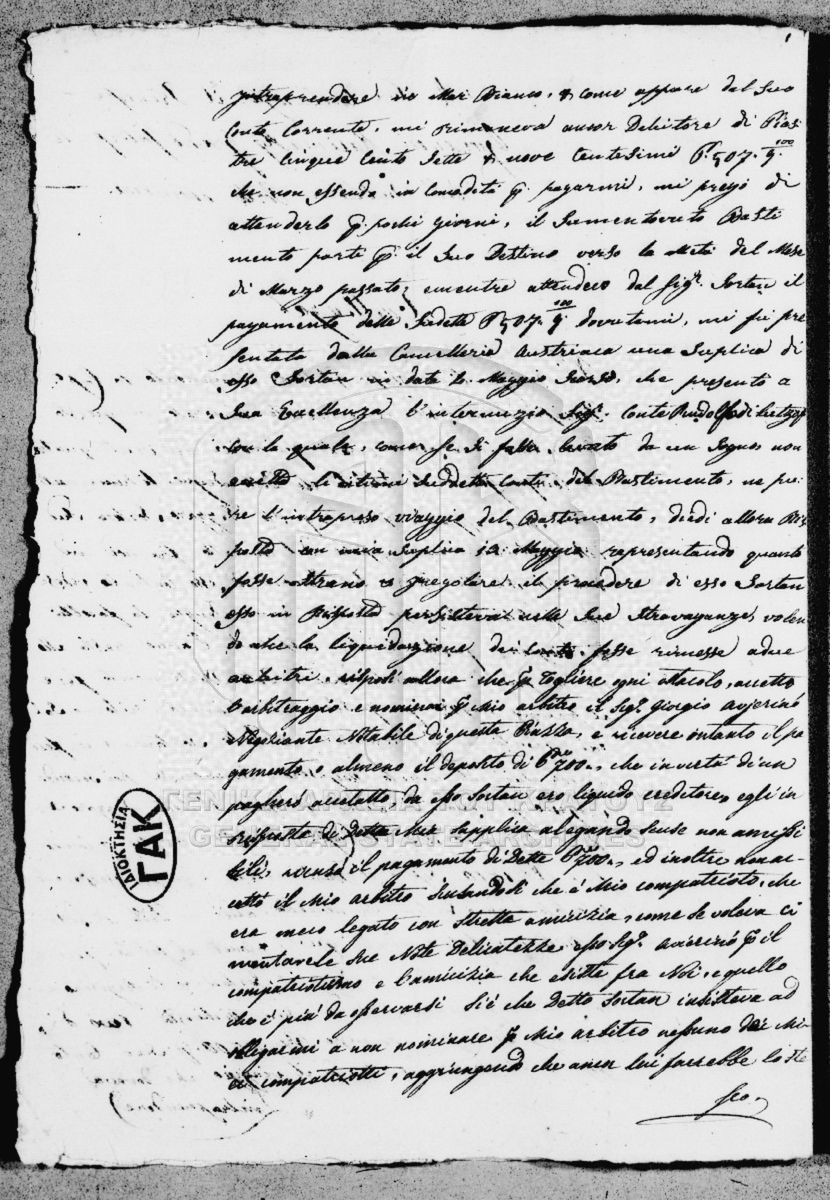 intraprendere in Mar Bianco, & come appare dal Suo
Conte Corrente, mi rimaneva ancor Debitore di Pias
tre cinque cento sette & nove centesimi P. 507. 9/100
che non essendo in comodità p pagarmi, mi pregò di
attenderlo p. pochi giorni, il Sumentovato Basti
mento partì p il Suo Destino verso la Metà del Mese
di Marzo passato, mentre attendevo dal Sigr. Sortan il
pagamento delle Sudette P 507. 9/100 dovutemi, mi fù pre
sentata dalla Cancelleria Austriaca una Suplica di
esso Sortan in data Maggio Scorso, che presentò a
Sua Eccellenza l'internunzio Sigr. Conte Rudolfo di
con la quale, come se si fosse levato da un Sogno, non
li ultimi Suddetti Conti del Bastimento, ne pu:
re l'intrapreso viaggio del Bastimento, diedi allora Ris
posta con mia Suplica 12 Maggio representando quanto
fosse strano & il procedere di esso Sortan
esso in Risposta persisteva nelle Sue Stravaganze, volen
do che la liquidazione dei Conti fosse rimessa a due
arbitri, risposi allora che p togliere ogni ostacolo, accetto
l'arbitraggio e nominai p Mio arbitro il Sigr. Giorgio Avierinò
Negoziante Notabile di questa Piazza, e ricevere intanto il pa
gamento o almeno il deposito di P 700., che in vertù di un
pagherò accettatto, da esso Sortan ero liquido creditore, egli in
risposta di Detta Mia Supplica alegando Scuse non amessi
bili, ricusò il pagamento di Dette P 700., ed inoltre non ac-
cettò il Mio arbitro Scusandosi che è Mio compatriotto, che
era meco legato con stretta amicizia, come se voleva ci
mentare le Sue Note Delicatezze esso Sigr. Avierinò p il
compatriotismo e l'amicizia che esiste fra Noi, e quello
che è più da osservarsi Si è che Detto Sortan insisteva ad
obligarmi a non nominare p Mio arbitro nessuno dei Mi-
ei compatriotti, aggiungendo che ancor lui farrebbe lo ste
sso.
ΙΔΙΟΚΤΗΣΙΑ
ΓΑΚ
GENERAL STATE ARCHIVES